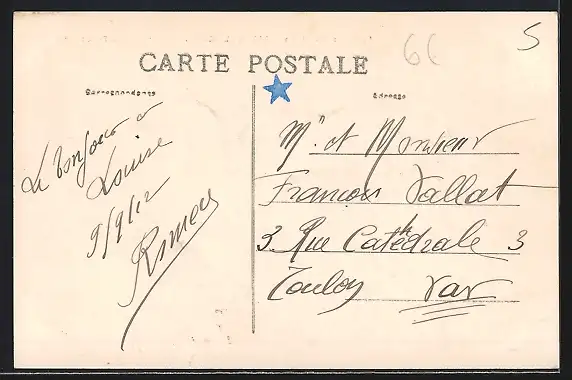 6C
5
CARTE POSTALE
Correspondance
Adresse
Le bonjour a
Louise
9/9/12
Rimey
Mr et Monsieur
Francois Vallat
3. Rue Cathédrale 3
Toulon Var